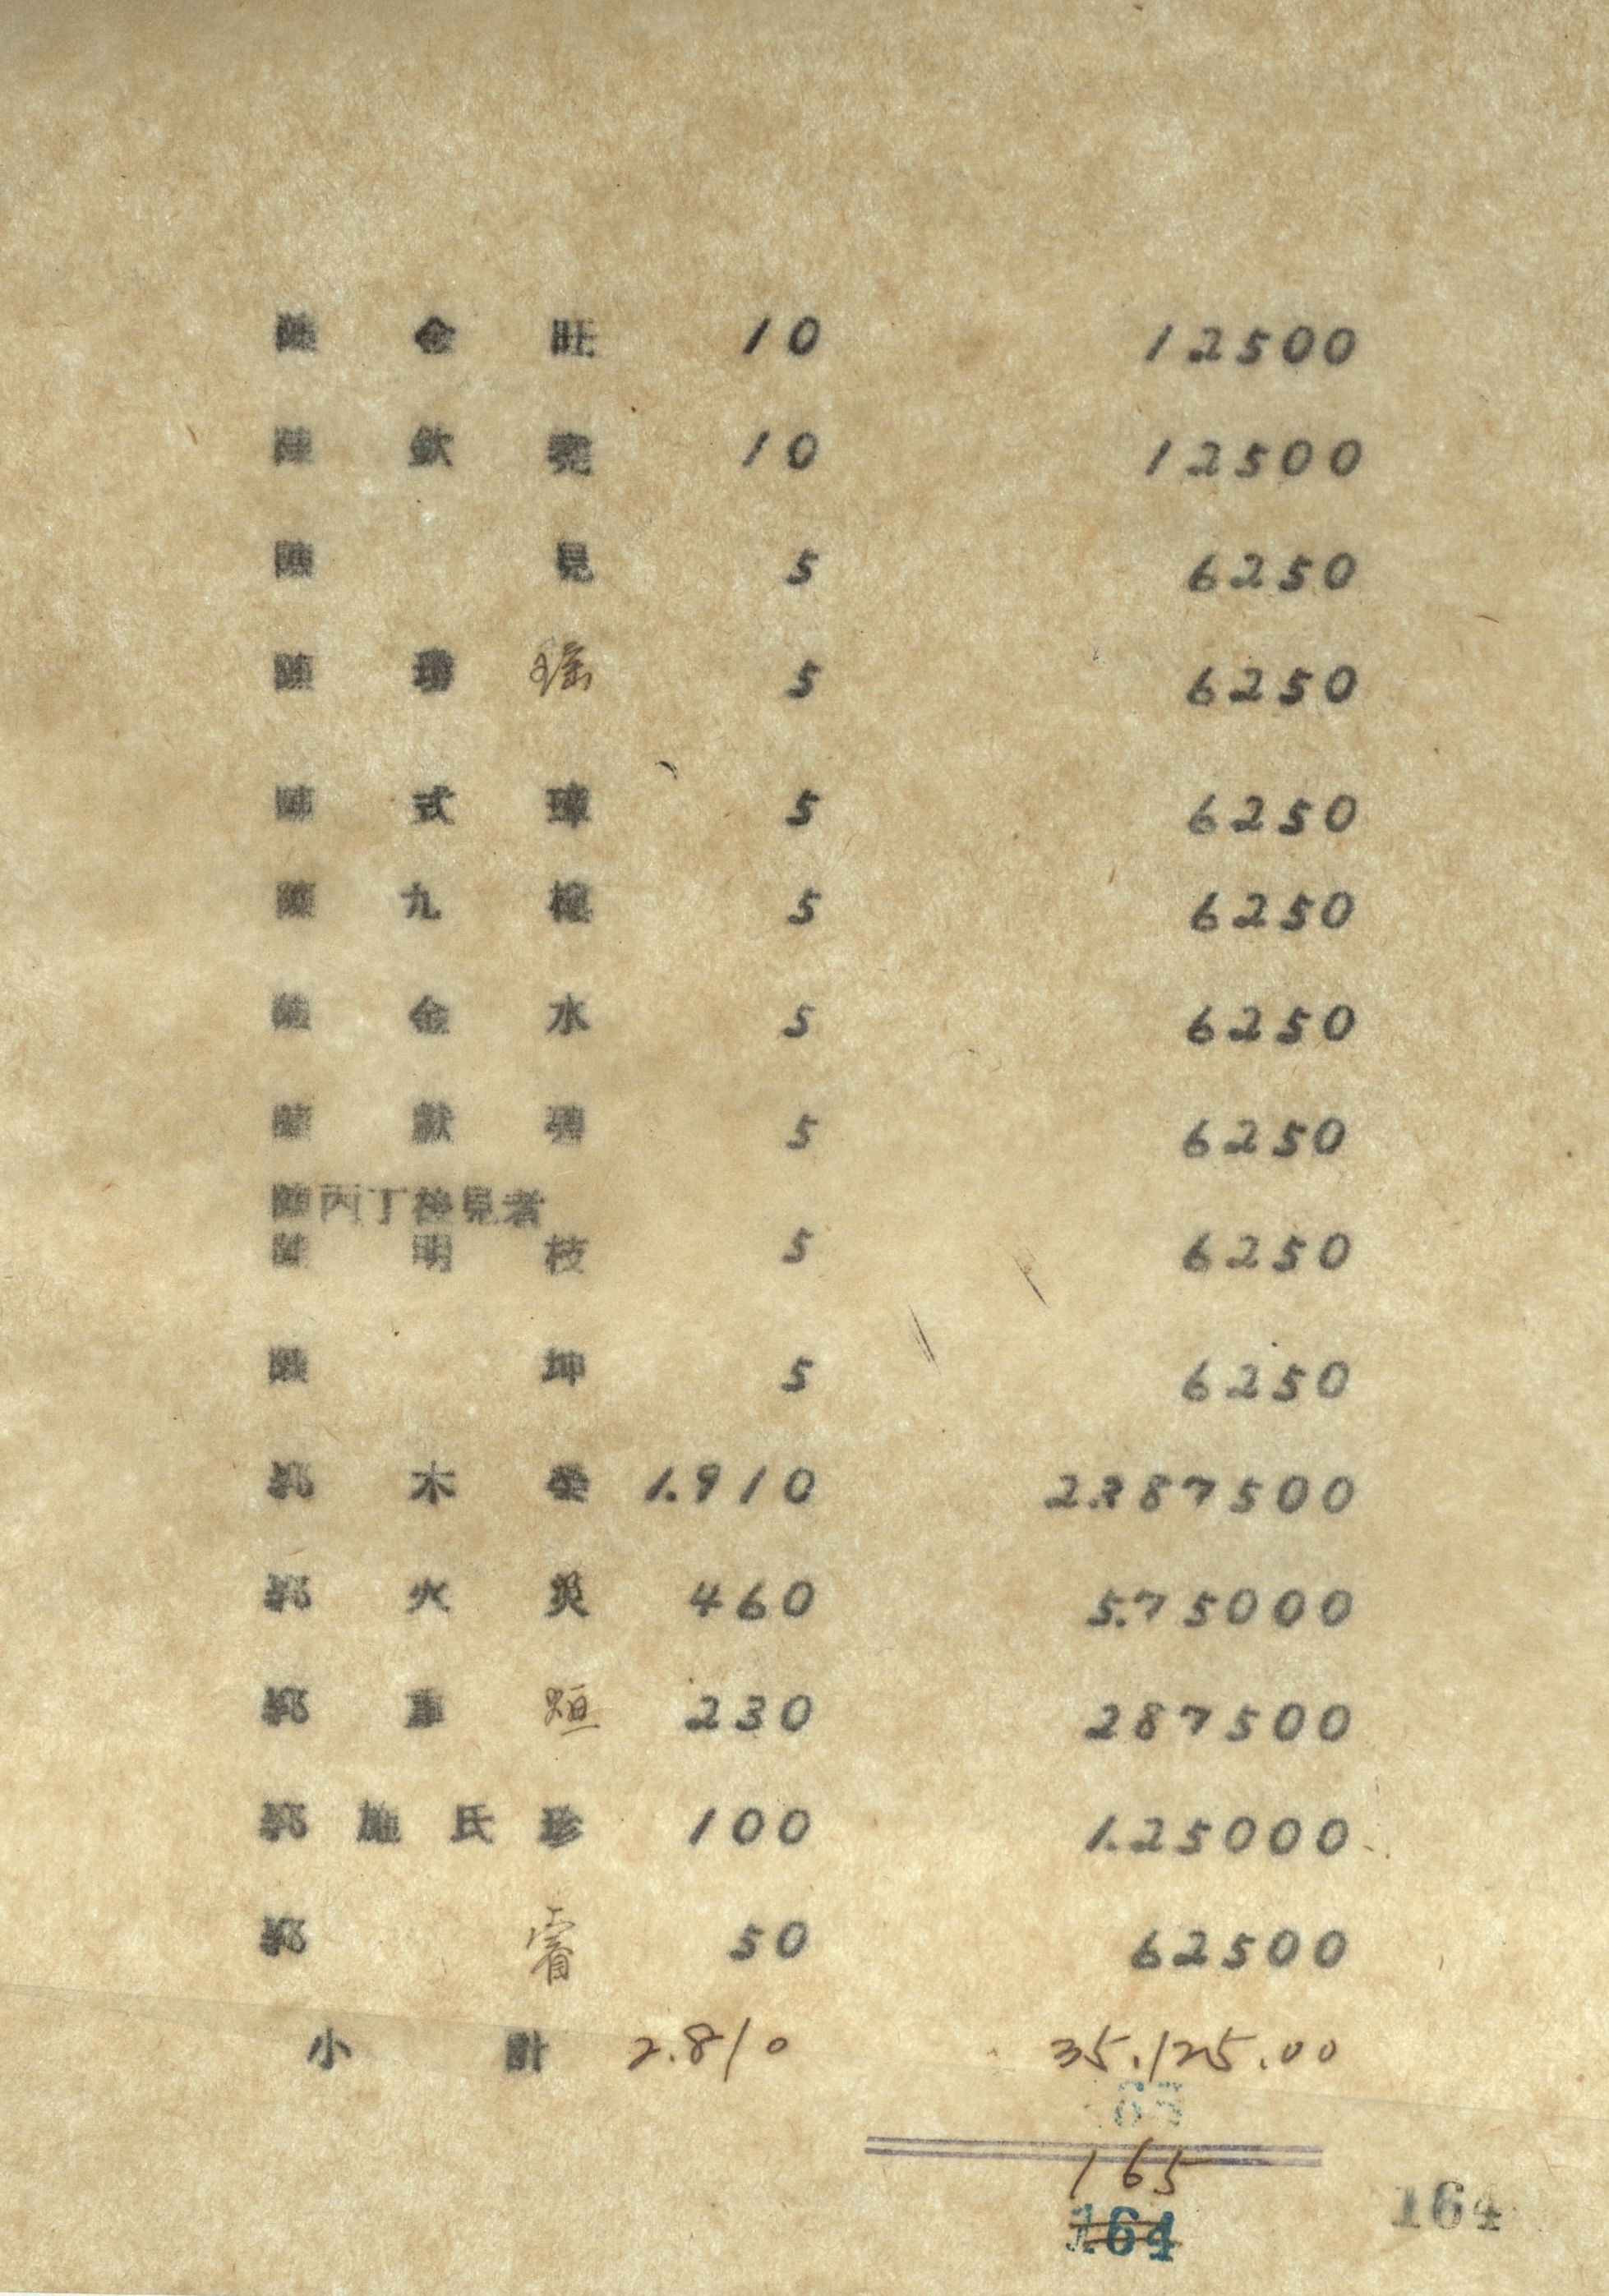 陳 金 旺 10 12500
陳 欽 堯 10 12500
陳 晃 5 6250
陳 瑤 5 6250
陳 式 璋 5 6250
陳 九 5 6250
陳 金 水 5 6250
陳 献 5 6250
陳丙丁 晃者
陳 明 枝 5 6250
陳 坤 5 6250
郭 木 1.910 2.387500
郭 火 炎 460 5.75000
郭 烜 230 287500
郭 施 氏 珍 100 1.25000
郭 50 62500
小 計 2.810 35.125.00
165
164
164